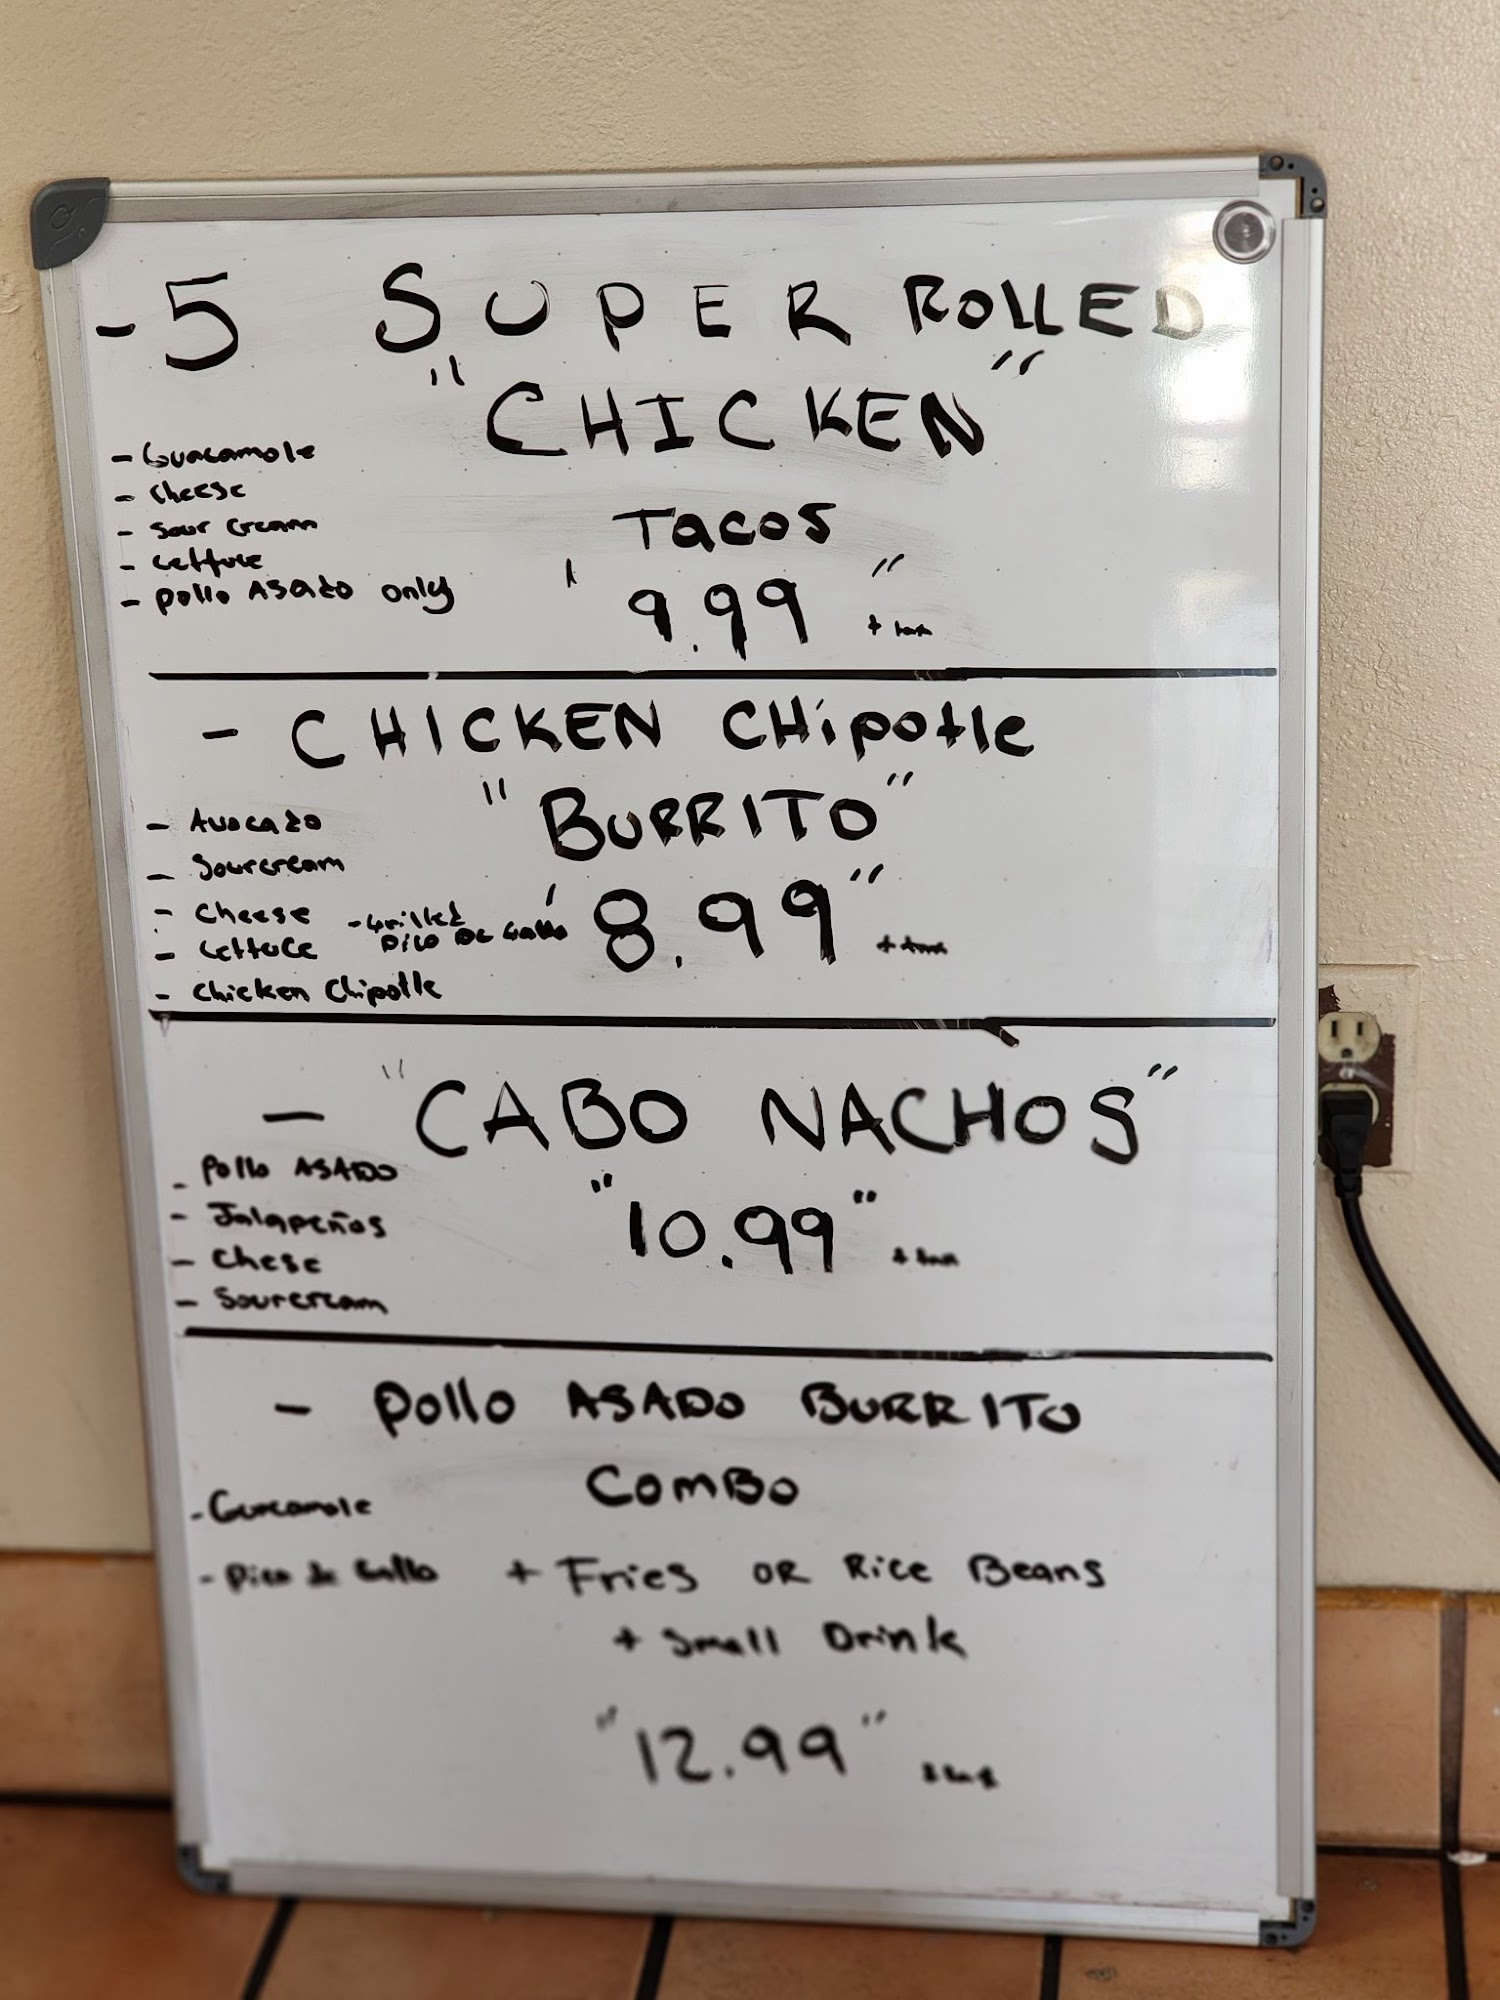 - 5 SUPER ROLLED
"CHICKEN"
TACOS
- Guacamole
- Cheese
- Sour Cream
- Lettuce
- Pollo ASADO only
'9.99" + tax
- CHICKEN CHipotle
"BURRITO"
- Avocado
- Sourcream
- Cheese
- Lettuce
- Chicken Chipotle
- Grilled
PICO DE Gallo
'8.99" + tax
- "CABO NACHOS"
- Pollo ASADO
- Jalapeños
- Chese
- Sourcream
"10.99" + tax
- Pollo ASADO BURRITO
COMBO
- Guacamole
- Pico de Gallo
+ Fries OR Rice Beans
+ Small Drink
"12.99"